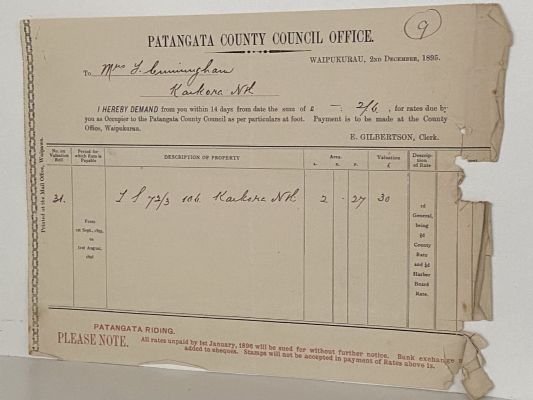 9
PATANGATA COUNTY COUNCIL OFFICE.
WAIPUKURAU, 2ND DECEMBER, 1895.
To Mrs J. Cunningham
Kaikora Nth
I HEREBY DEMAND from you within 14 days from date the sum of £ —: 2/6, for rates due by
you as Occupier to the Patangata County Council as per particulars at foot. Payment is to be made at the County
Office, Waipukurau.
E. GILBERTSON, Clerk.
Printed at the Mail Office, Waipawa.
No. on Valuation Roll
Period for which Rate is Payable
DESCRIPTION OF PROPERTY
Area.
A. R. P.
Valuation £
Description of Rate
31.
From 1st Sept., 1895, to 31st August, 1896
T S 72/3 106 Kaikora Nth
2 - 27
30
1d General, being ¾d County Rate and ¼d Harbor Board Rate.
PATANGATA RIDING.
PLEASE NOTE. All rates unpaid by 1st January, 1896 will be sued for without further notice. Bank exchange
added to cheques. Stamps will not be accepted in payment of Rates above 1s.